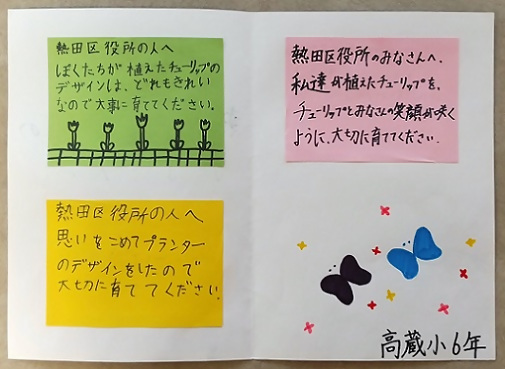 熱田区役所の人へ
ぼくたちが植えたチューリップの
デザインは、どれもきれい
なので大事に育ててください。
熱田区役所の人へ
思いをこめてプランター
のデザインをしたので
大切に育ててください。
熱田区役所のみなさんへ、
私達が植えたチューリップを、
チューリップとみなさんの笑顔が咲く
ように、大切に育ててください。
高蔵小6年